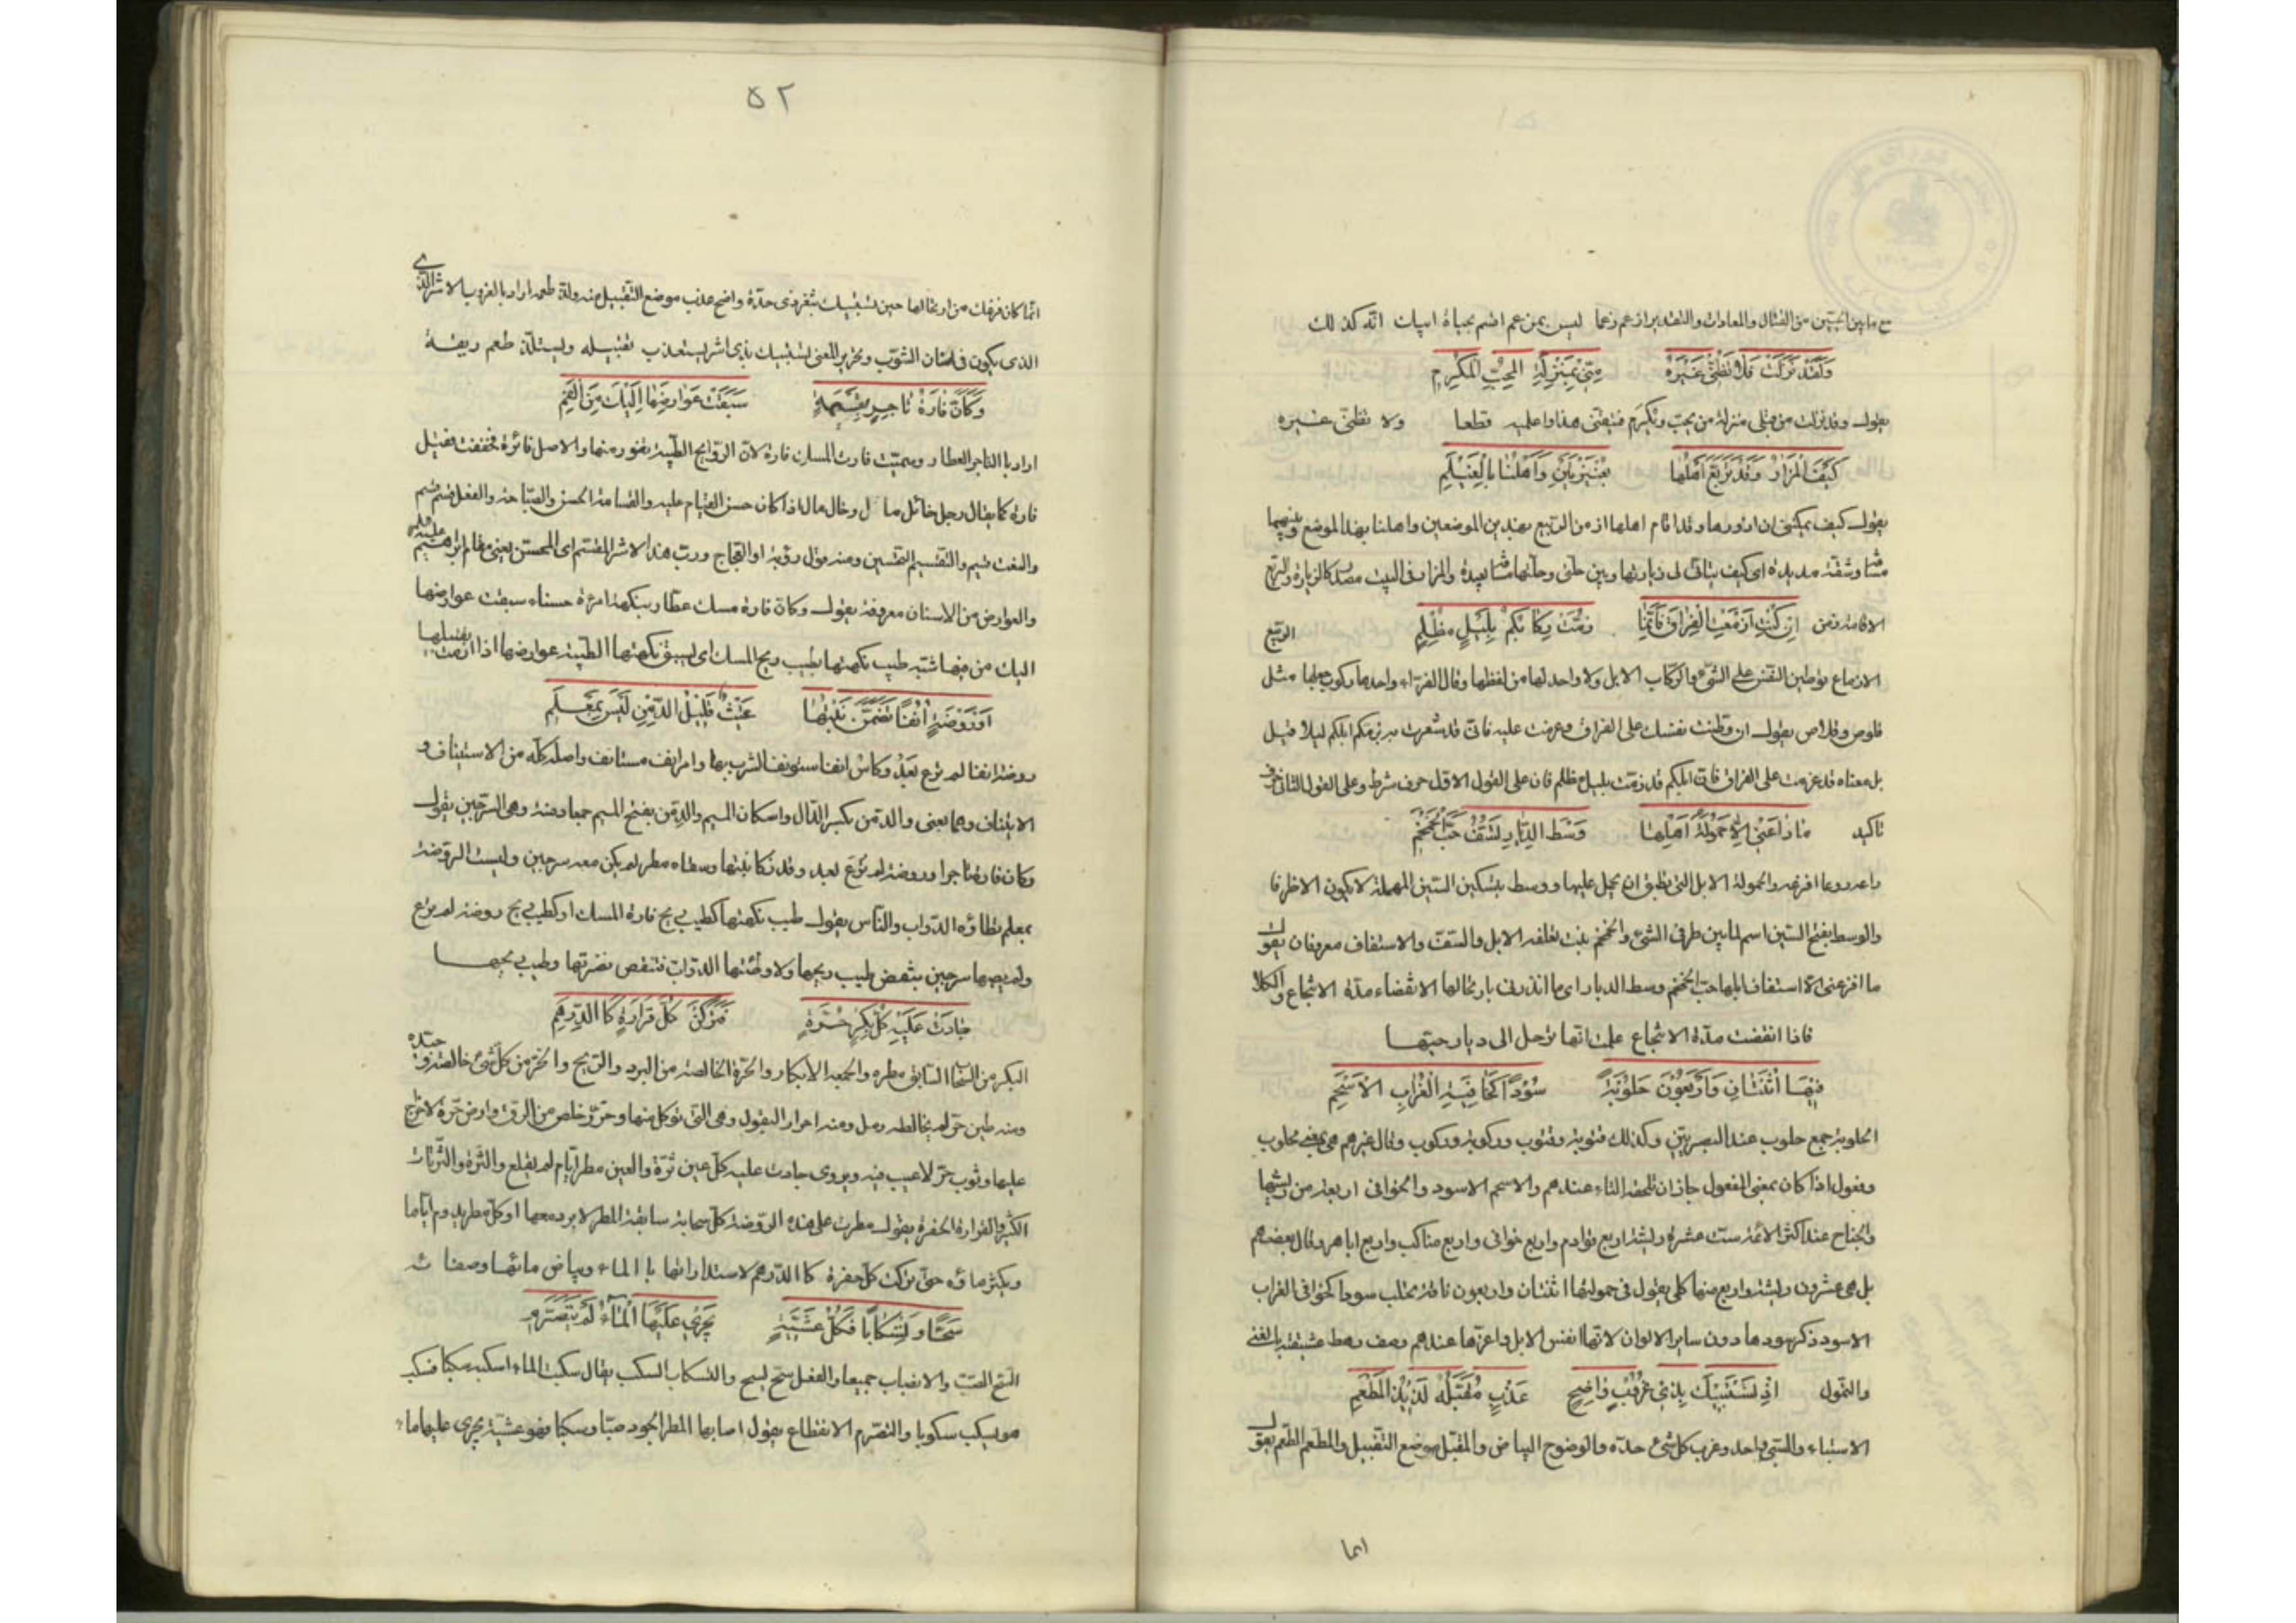 مع ما بين الحيّين من القتال والمعادات والتقدير ازعم زعما ليس بمزعم اقسم بحياة ابيك انّه كذلك
وَلَقَدْ نَزَلْتِ فَلا تَظُنّي غَيْرَهُ مِنّي بِمَنْزِلَةِ المُحِبِّ المُكْرَمِ
يقول وقد نزلت من قلبي منزلة من يحبّ ويكرم فتيقّني هذا واعلميه قطعا ولا تظنّي غيره
كَيْفَ المَزارُ وَقَدْ تَرَبَّعَ اَهْلُها بِعُنَيْزَتَيْنِ وَاَهْلُنا بِالْغَيْلَمِ
يقول كيف يمكنني ان ازورها وقد اقام اهلها زمن الربيع بهذين الموضعين واهلنا بهذا الموضع وبينهما
مشقّة مديدة اى كيف يتأتّى لى زيارتها وبين حلّتى وحلّتها مسافة بعيدة والمزار فى البيت مصدر كالزيارة والتربّع
الاقامة زمن الربيع اِنْ كُنْتِ اَزْمَعْتِ الفِراقَ فَاِنَّما زُمَّتْ رِكابُكُمْ بِلَيْلٍ مُظْلِمِ
الازماع توطين النفس على الشىء والركاب الابل ولا واحد لها من لفظها وقال الفرّاء واحدها ركوب مثل
قلوص وقلاص يقول ان وطّنت نفسك على الفراق وعزمت عليه فانّى قد شعرت به بزمّكم ابلكم ليلا وقيل
بل معناه قد عزمت على الفراق فانّ ابلكم قد زمّت بليل مظلم فان على القول الاوّل حرف شرط وعلى القول الثانى حرف
تأكيد ما راعَني اِلّا حَمُولَةُ اَهْلِها وَسْطَ الدِّيارِ تَسُفُّ حَبَّ الخِمْخِمِ
راعه روعا افزعه والحمولة الابل التى تطيق ان يحمل عليها ووسط بتسكين السين المهملة لا يكون الا ظرفا
والوسط بفتح السين اسم لما بين طرفى الشىء والخمخم نبت تعلفه الابل والسفّ والاستفاف معروفان يقول
ما افزعنى الا استفاف ابلها حبّ الخمخم وسط الديار اى ما انذرنى بارتحالها الا انقضاء مدّة الانتجاع والكلأ
فاذا انقضت مدّة الانتجاع علمت انها ترحل الى ديار حيّها
فيها اثْنَتانِ وَاَرْبَعُونَ حَلُوبَةً سُودًا كَخافِيَةِ الْغُرابِ الاَسْحَمِ
الحلوبة جمع حلوب عند البصريّين وكذلك قتوبة وقتوب وركوبة وركوب وقال غيرهم هى بمعنى محلوب
وفعول اذا كان بمعنى المفعول جاز ان تلحقه التاء عندهم والاسحم الاسود والخوافى اربعة من ريشها
والجناح عند اكثر الائمّة ستّ عشرة ريشة اربع قوادم واربع خوافى واربع مناكب واربع اباهر وقال بعضهم
بل هى عشرون ريشة واربع منها كلى يقول فى حمولتها اثنتان واربعون ناقة تحتلب سودا كخوافى الغراب
الاسود ذكر سودها دون سائر الالوان لانها انفس الابل واعزّها عندهم وصف رهط عشيقته بالغنى
والتموّل اِذْ تَسْتَبيكَ بِذي غُرُوبٍ واضِحٍ عَذْبٍ مُقَبَّلُهُ لَذيذِ المَطْعَمِ
الاستباء والسبى واحد وغرب كل شىء حدّه والوضوح البياض والمقبّل موضع التقبيل والمطعم الطعم يقول
انما
٥٢
انّما كان فزعك من ارتحالها حين تستبيك بثغر ذى حدّة واضح عذب موضع التقبيل منه ولذّ طعمه اراد بالغروب الاشر الذى
الذى يكون فى اسنان الشوابّ وتحرير المعنى تستبيك بذى اشر يستعذب تقبيله ويستلذّ طعم ريقه
وَكَاَنَّ فارَةَ تاجِرٍ بِقَسيمَةٍ سَبَقَتْ عَوارِضَها اِلَيْكَ مِنَ الفَمِ
اراد بالتاجر العطار وسميّت فارة المسك فارة لانّ الروايح الطيّبة تفور منها والاصل فائرة فخفّفت فقيل
فارة كما يقال رجل خائل مال وخال مال اذا كان حسن القيام عليه والقسامة الحسن والصباحة والفعل قسم يقسم
والنعت قسيم والتقسيم التحسين ومنه قول رؤبة او العجّاج وربّ هذا الاثر المقسّم اى المحسّن يعنى مقام ابرهيم عليه السلام
والعوارض من الاسنان معروفة يقول وكانّ فارة مسك عطّار بنكهة امرأة حسناء سبقت عوارضها
اليك من فيها شبّه طيب نكهتها بطيب ريح المسك اى يسبق نكهتها الطيّبة عوارضها اذا رمت تقبيلها
اَوْ رَوْضَةً اُنُفًا تَضَمَّنَ نَبْتَها غَيْثٌ قَليلُ الدِّمْنِ لَيْسَ بِمَعْلَمِ
روضة انفا لم ترع بعد وكأس انفا استونف الشرب بها وامر انف مستأنف واصله كلّه من الاستيناف و
الايتناف وهما بمعنى والدّمن بكسر الدّال واسكان الميم والدِّمَن بفتح الميم جمعا دمنة وهى السرجين يقول
وكان فارة تاجر او روضة لم ترع بعد وقد زكا نبتها وسقاه مطر لم يكن معه سرجين وليست الروضة
بمعلم تطأه الدّواب والنّاس يقول طيب نكهتها كطيب ريح فارة المسك او كطيب ريح روضة لم ترع
ولم يصبها سرجين ينقص طيب ريحها ولا وطئتها الدوّاب فتنقص نضرتها وطيب ريحها
جادَتْ عَلَيْهِ كُلُّ بِكْرٍ حُرَّةٍ فَتَرَكْنَ كُلَّ قَرارَةٍ كَالدِّرْهَمِ
البكر من السحاب السابق مطره والجمع الابكار والحرّة الخالصة من البرد والريح والحرّ من كلّ شىء خالصه وجيّده
ومنه طين حرّ لم يخالطه رمل ومنه احرار البقول وهى التى تؤكل منها وحرّ خلص من الرقّ وارض حرّة لا خراج
عليها وثوب حرّ لا عيب فيه ويروى جادت عليه كلّ عين ثرّة والعين مطر ايّام لم يقلع والثرّة والثرثار
الكثير والقرارة الحفرة يقول مطرت على هذه الروضة كلّ سحابة سابقة المطر لا برد معها او كلّ مطر يدوم ايّاما
ويكثر ماؤه حتّى تركت كلّ حفرة كالدّرهم لاستدارتها بالماء وبياض مائها وصفائه
سَحًّا وَتَسْكابًا فَكُلَّ عَشِيَّةٍ يَجْري عَلَيْها الماءُ لَمْ يَتَصَرَّمِ
السّح الصبّ والانصباب جميعا والفعل سحّ يسحّ والتسكاب السكب يقال سكبت الماء اسكبه سكبا فسكب
هو يسكب سكوبا والتصرّم الانقطاع يقول اصابها المطر الجود صبّا وسكبا فهو عشيّة يجرى عليها ماء